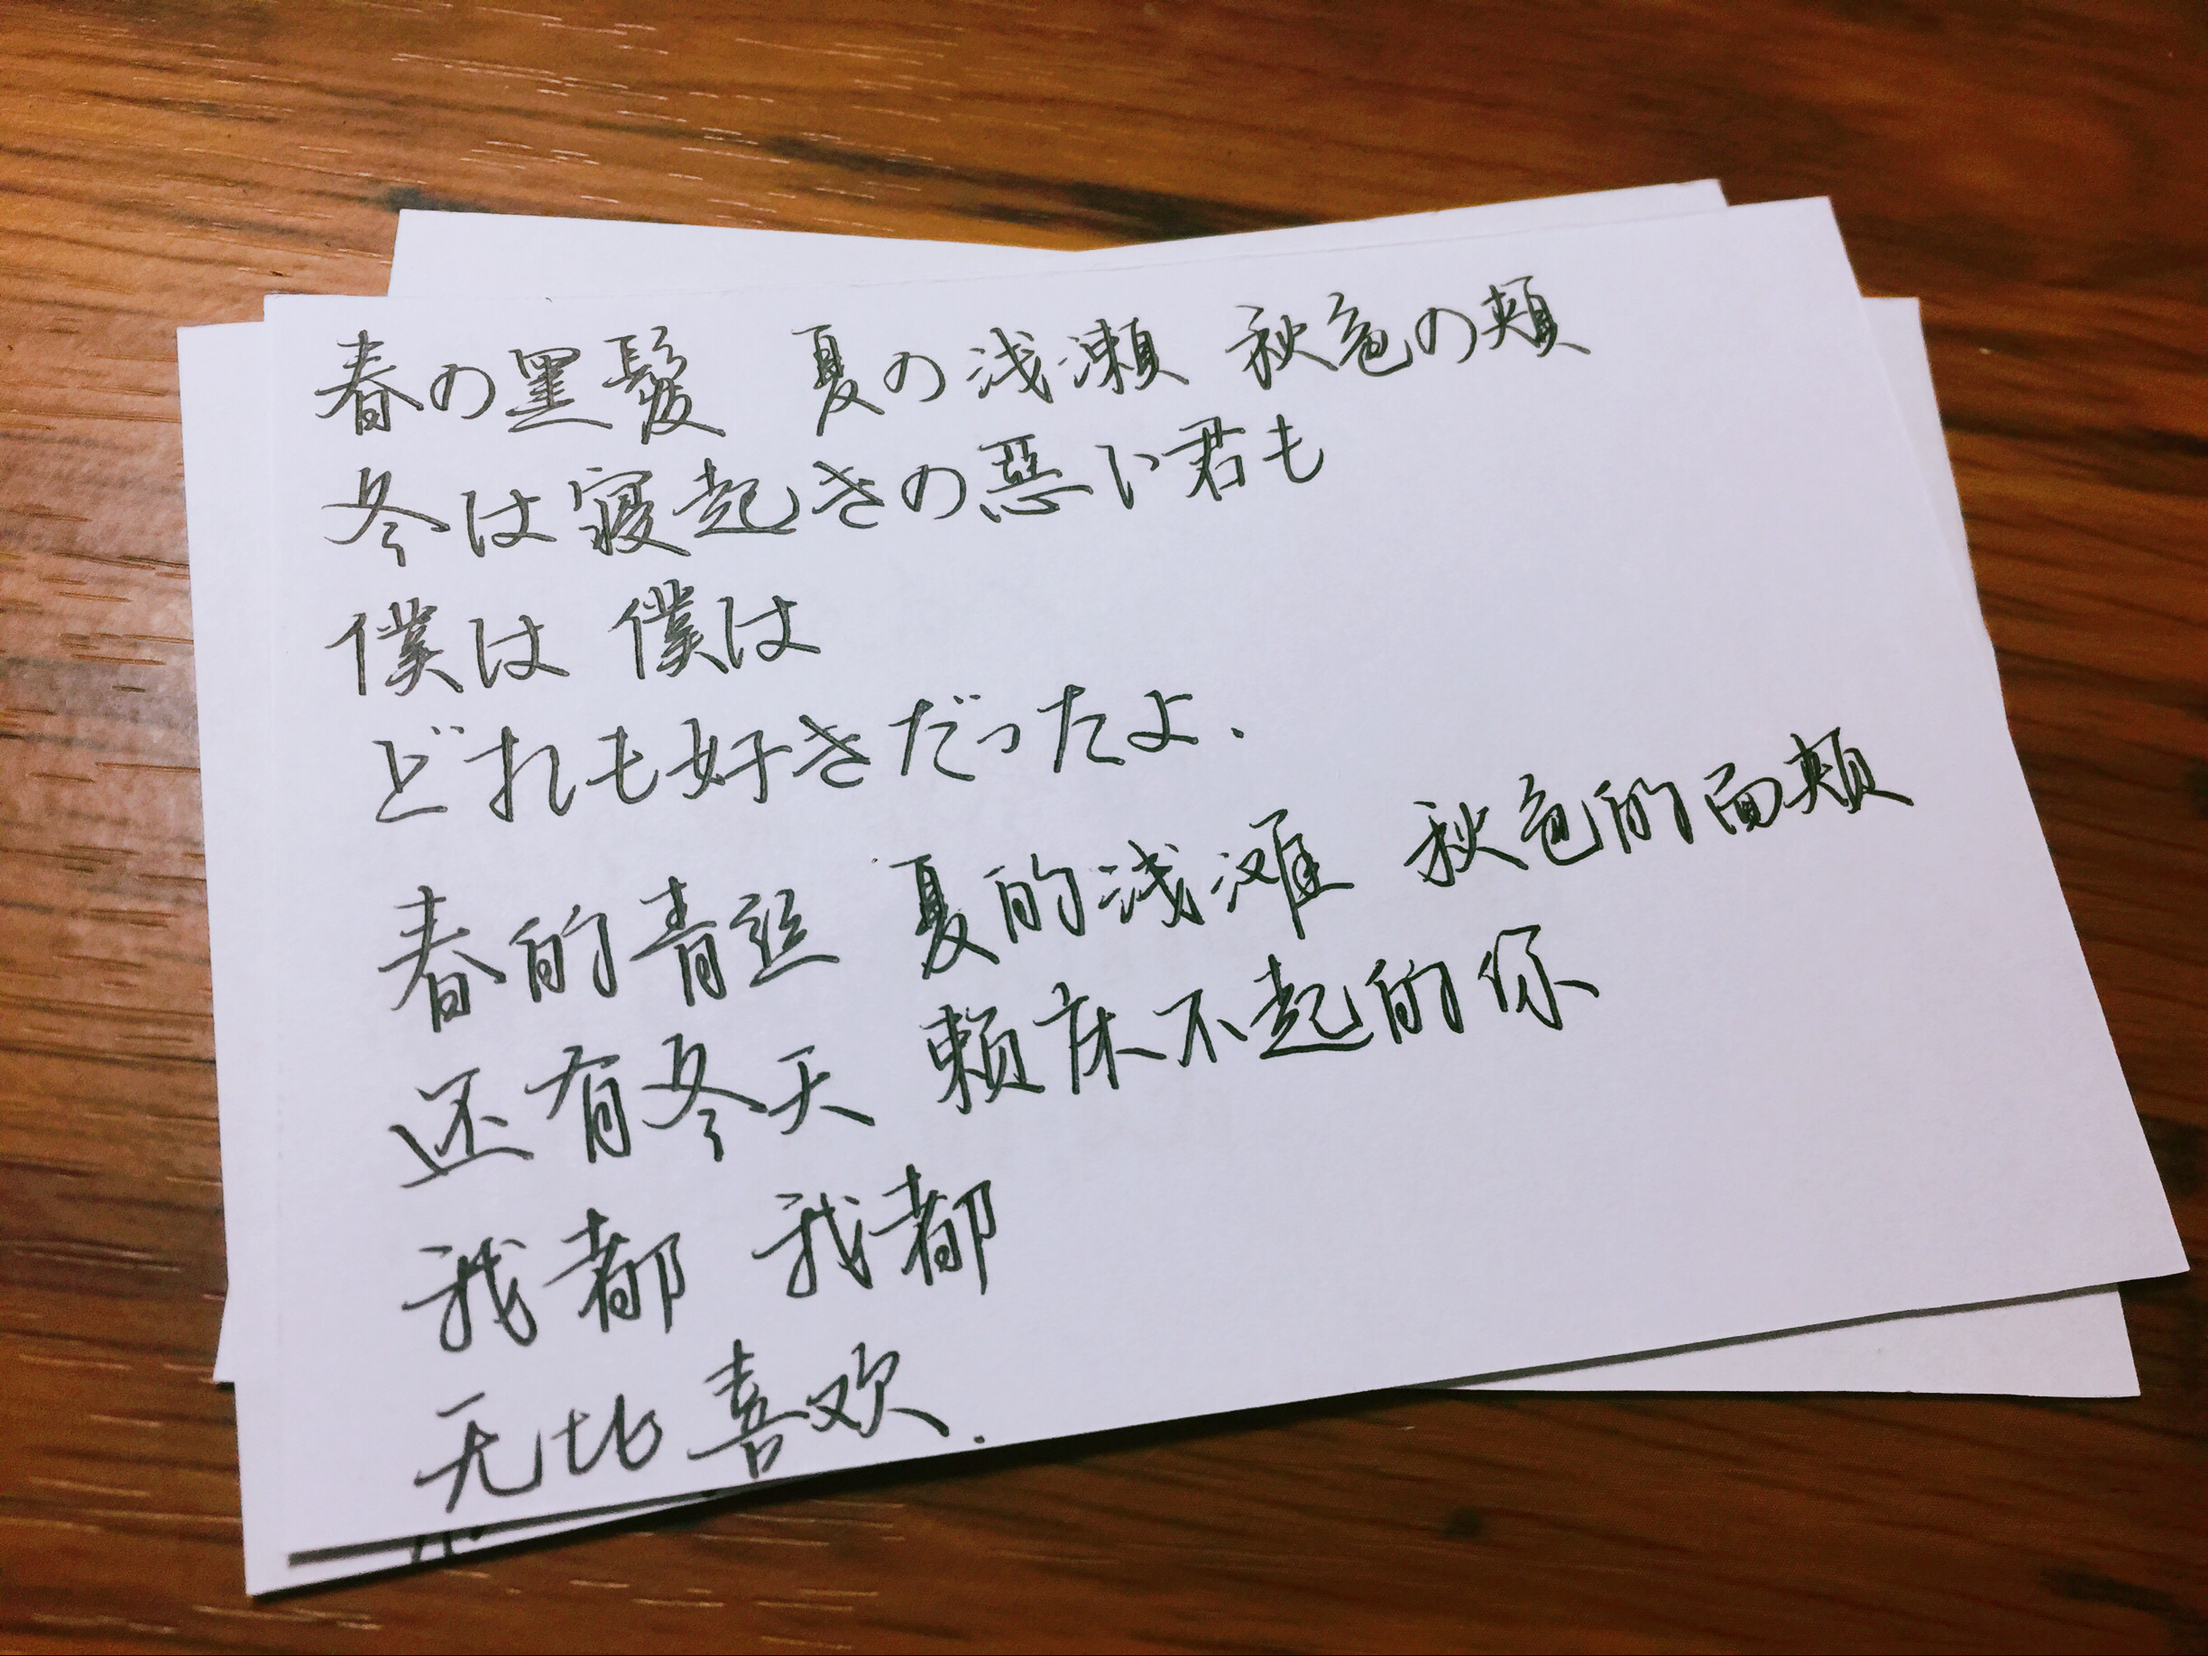 春の黒髪 夏の浅瀬 秋色の頬
冬は寝起きの悪い君も
僕は 僕は
どれも好きだったよ、
春的青丝 夏的浅滩 秋色的面颊
还有冬天 赖床不起的你
我都 我都
无比喜欢.